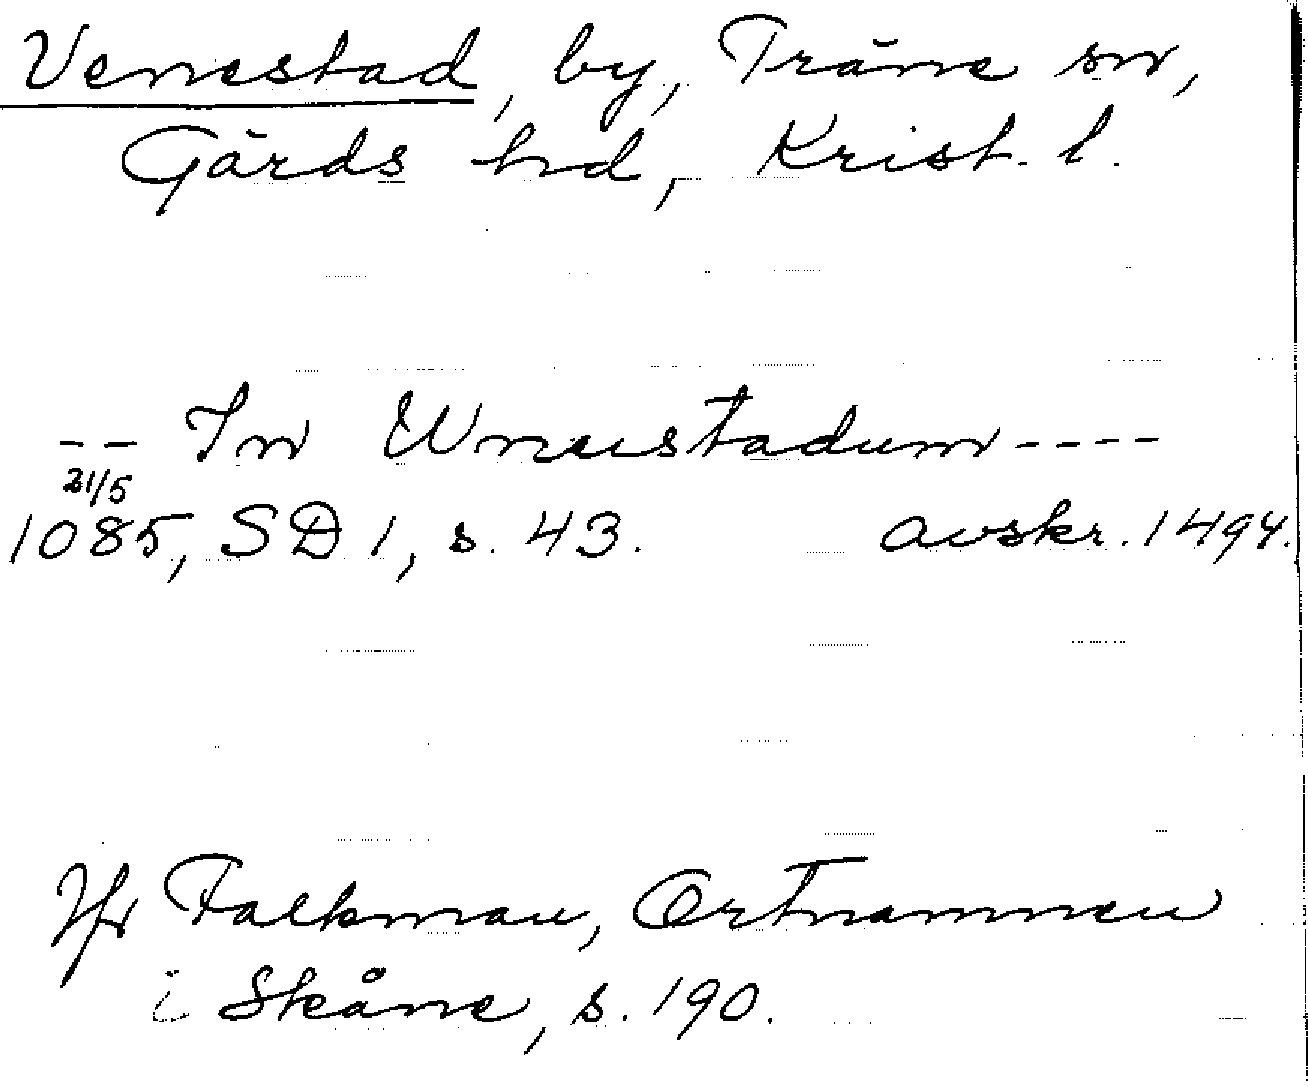 Vennestad, by, Träne sn,
Gärds hd, Krist. l.
-- In Wneustadum ----
21/5
1085, SD 1, s. 43. avskr. 1494.
Jfr Falkman, Ortnamnen
i Skåne, s. 190.